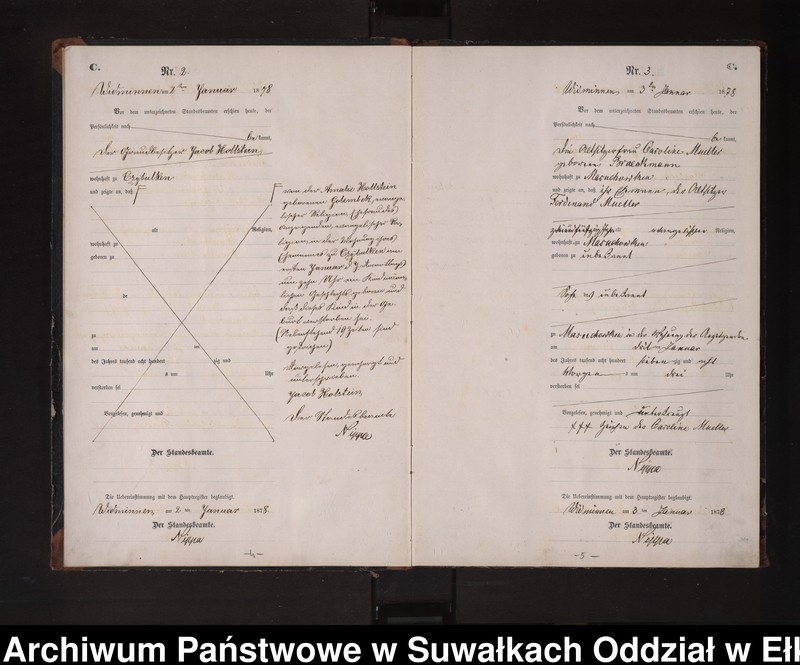 C.
Nr. 2.
Widminnen am 2ten Januar 1878
Vor dem unterzeichneten Standesbeamten erschien heute, der
Persönlichkeit nach
be kannt,
Der Grundbesitzer Jacob Hollstein
wohnhaft zu Czybulken
und zeigte an, daß
alt Religion,
wohnhaft zu
geboren zu
de
zu
am um
des Jahres tausend acht hundert zig und
um Uhr
verstorben sei
Vorgelesen, genehmigt und
von der Amalie Hollstein
geborenen Golembek, evange-
lischer Religion, (Ehefrau des
Anzeigenden, evangelischer Re-
ligion, in der Wohnung ihres
Ehemannes zu Czybulken am
ersten Januar d. J. Vormittags
um zehn Uhr ein Kind männ-
lichen Geschlechts geboren und
daß dieses Kind in der Ge-
burt verstorben sei.
(Nebenstehend 19 Zeilen sind
gestrichen)
Vorgelesen, genehmigt und
unterschrieben
Jacob Holstein
Der Standesbeamte
Nippa
Der Standesbeamte.
Die Uebereinstimmung mit dem Hauptregister beglaubigt
Widminnen am 2ten Januar 1878.
Der Standesbeamte.
Nippa
-4-
C.
Nr. 3.
Widminnen am 3ten Januar 1878
Vor dem unterzeichneten Standesbeamten erschien heute, der
Persönlichkeit nach
be kannt,
Die Altsitzerfrau Caroline Mueller
geborene
wohnhaft zu Marschowken
und zeigte an, daß ihr Ehemann, der Altsitzer
Ferdinand Mueller
alt evangelischer Religion,
wohnhaft zu Marschowken
geboren zu unbekannt
Sohn unbekannt
zu Marschowken in der Wohnung der Anzeigenden
am dritten Januar
des Jahres tausend acht hundert sieben zig und acht
Morgens um drei Uhr
verstorben sei
Vorgelesen, genehmigt und unterkreuzt
+++ Zeichen der Caroline Mueller
Der Standesbeamte.
Nippa
Die Uebereinstimmung mit dem Hauptregister beglaubigt
Widminnen am 3ten Januar 1878
Der Standesbeamte.
Nippa
-5-
Archiwum Państwowe w Suwałkach Oddział w Ełk